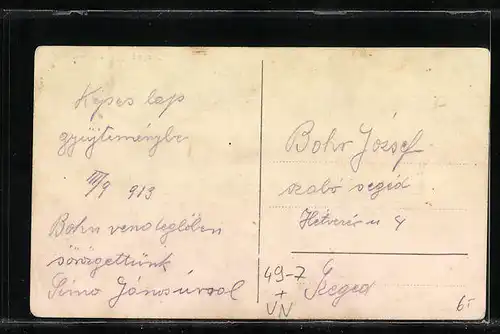 Képes lap
gyüjteménybe
III/9 913
Bohn vendeglőben
sörözgettünk
Jánosúrral
Bohr József
szabó segéd
Hétvezér u 4
Szeged
49-7
+
VN
6.-